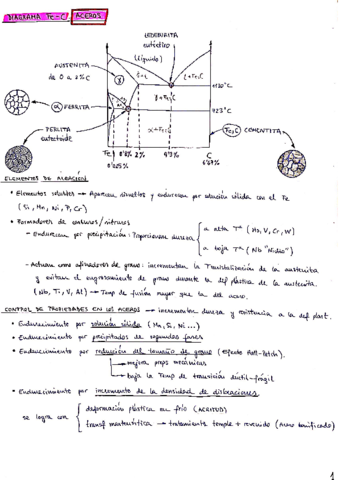 DIAGRAMA Fe-C ACEROS
LEDEBURITA
eutéctico
(Líquido)
AUSTENITA
de 0 a 2% C
γ
γ+L
L+Fe3C
1130°C
α FERRITA
γ+Fe3C
723°C
PERLITA
eutectoide
α+Fe3C
Fe3C CEMENTITA
Fe
0'025%
0'8%
2%
4'3%
C
6'67%
ELEMENTOS DE ALEACIÓN
• Elementos solubles → Aparecen disueltos y endurecen por solución sólida con el Fe
(Si, Mn, Ni, P, Cr)
• Formadores de carburos/nitruros
- Endurecen por precipitación: Proporcionan dureza
a alta Tª (Mo, V, Cr, W)
a baja Tª (Nb "Niobio")
- Actúan como afinadores de grano: incrementan la T cristalización de la austenita
y evitan el engrosamiento de grano durante la def plástica de la austenita.
(Nb, Ti, V, Al) → Temp de fusión mayor que la del acero.
CONTROL DE PROPIEDADES EN LOS ACEROS → incrementar dureza y resistencia a la def plast.
• Endurecimiento por solución sólida (Mn, Si, Ni...)
• Endurecimiento por precipitados de segundas fases
• Endurecimiento por reducción del tamaño de grano (efecto Hall-Petch).
→ mejora props mecánicas
→ baja la Temp de transición dúctil-frágil
• Endurecimiento por incremento de la densidad de dislocaciones
se logra con
deformación plástica en frío (ACRITUD)
transf martensítica → tratamiento temple + revenido (Acero bonificado)
1